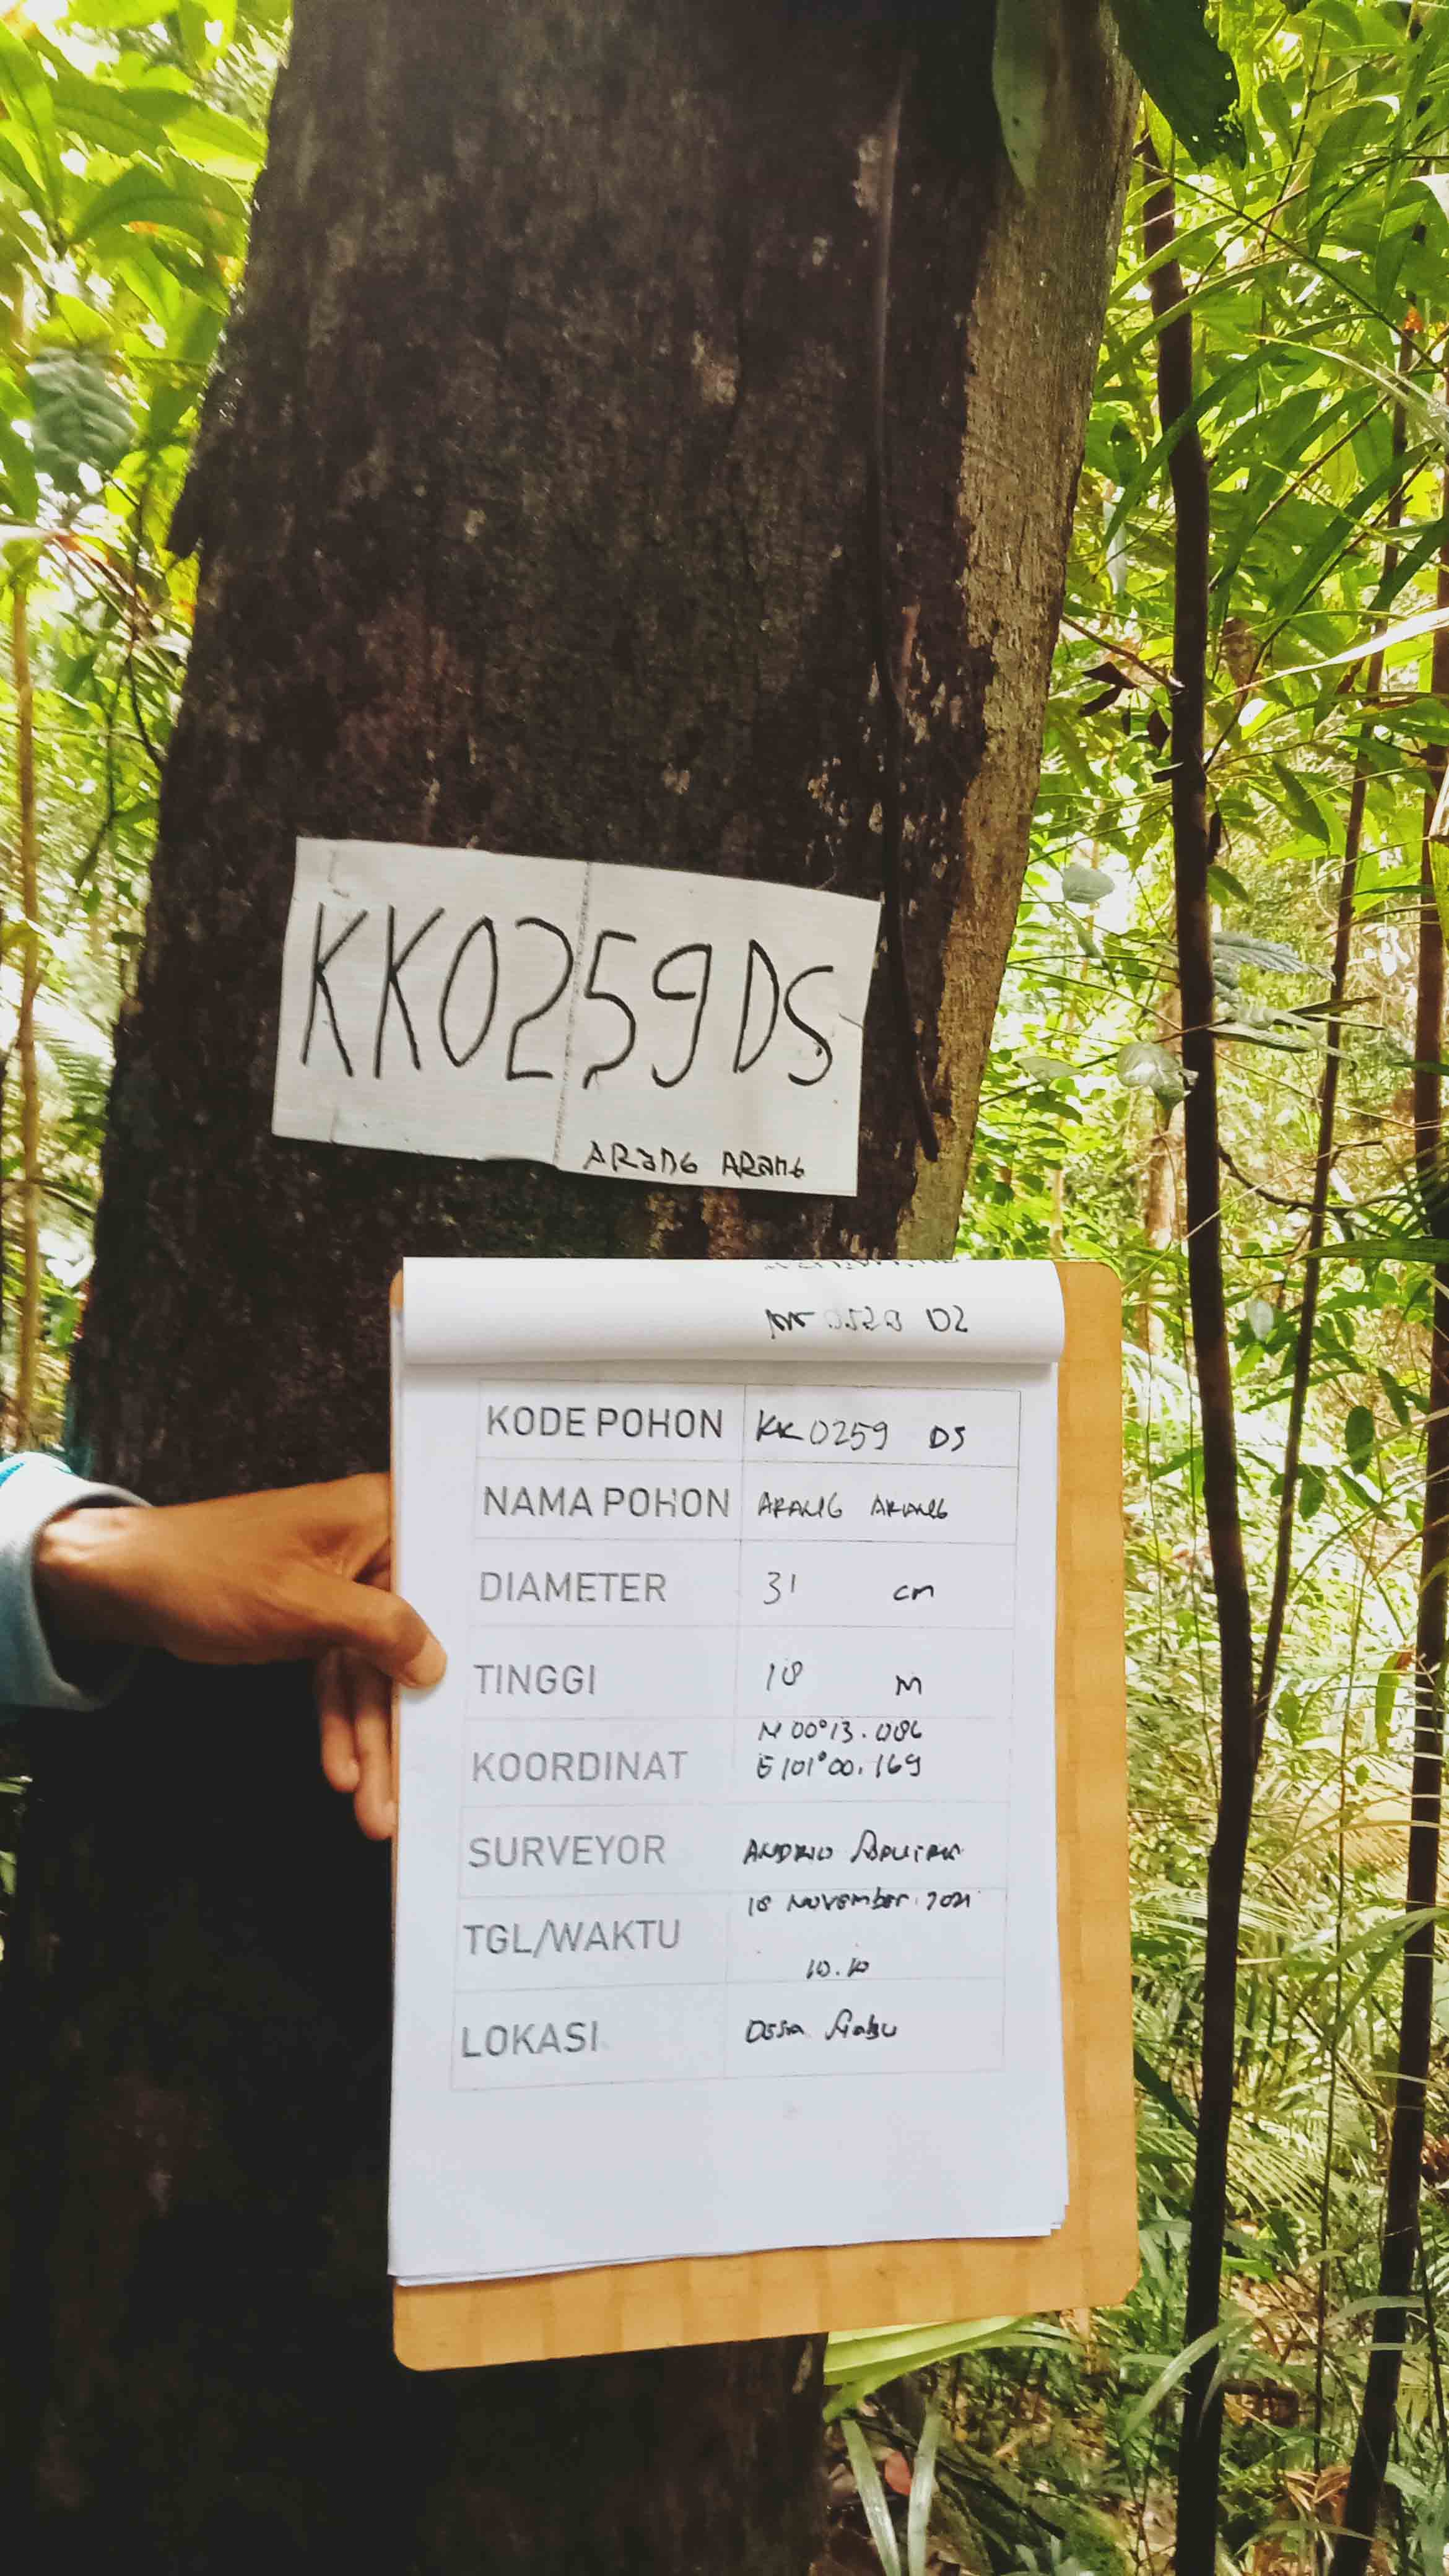 KK0259 DS
ARANG ARANG
KODE POHON KK0259 DS
NAMA POHON ARANG ARANG
DIAMETER 31 cm
TINGGI 18 M
KOORDINAT N 00°13.086
E 101°00.169
SURVEYOR ANDRIO
TGL/WAKTU 18 November 2021
10.10
LOKASI Desa Siabu